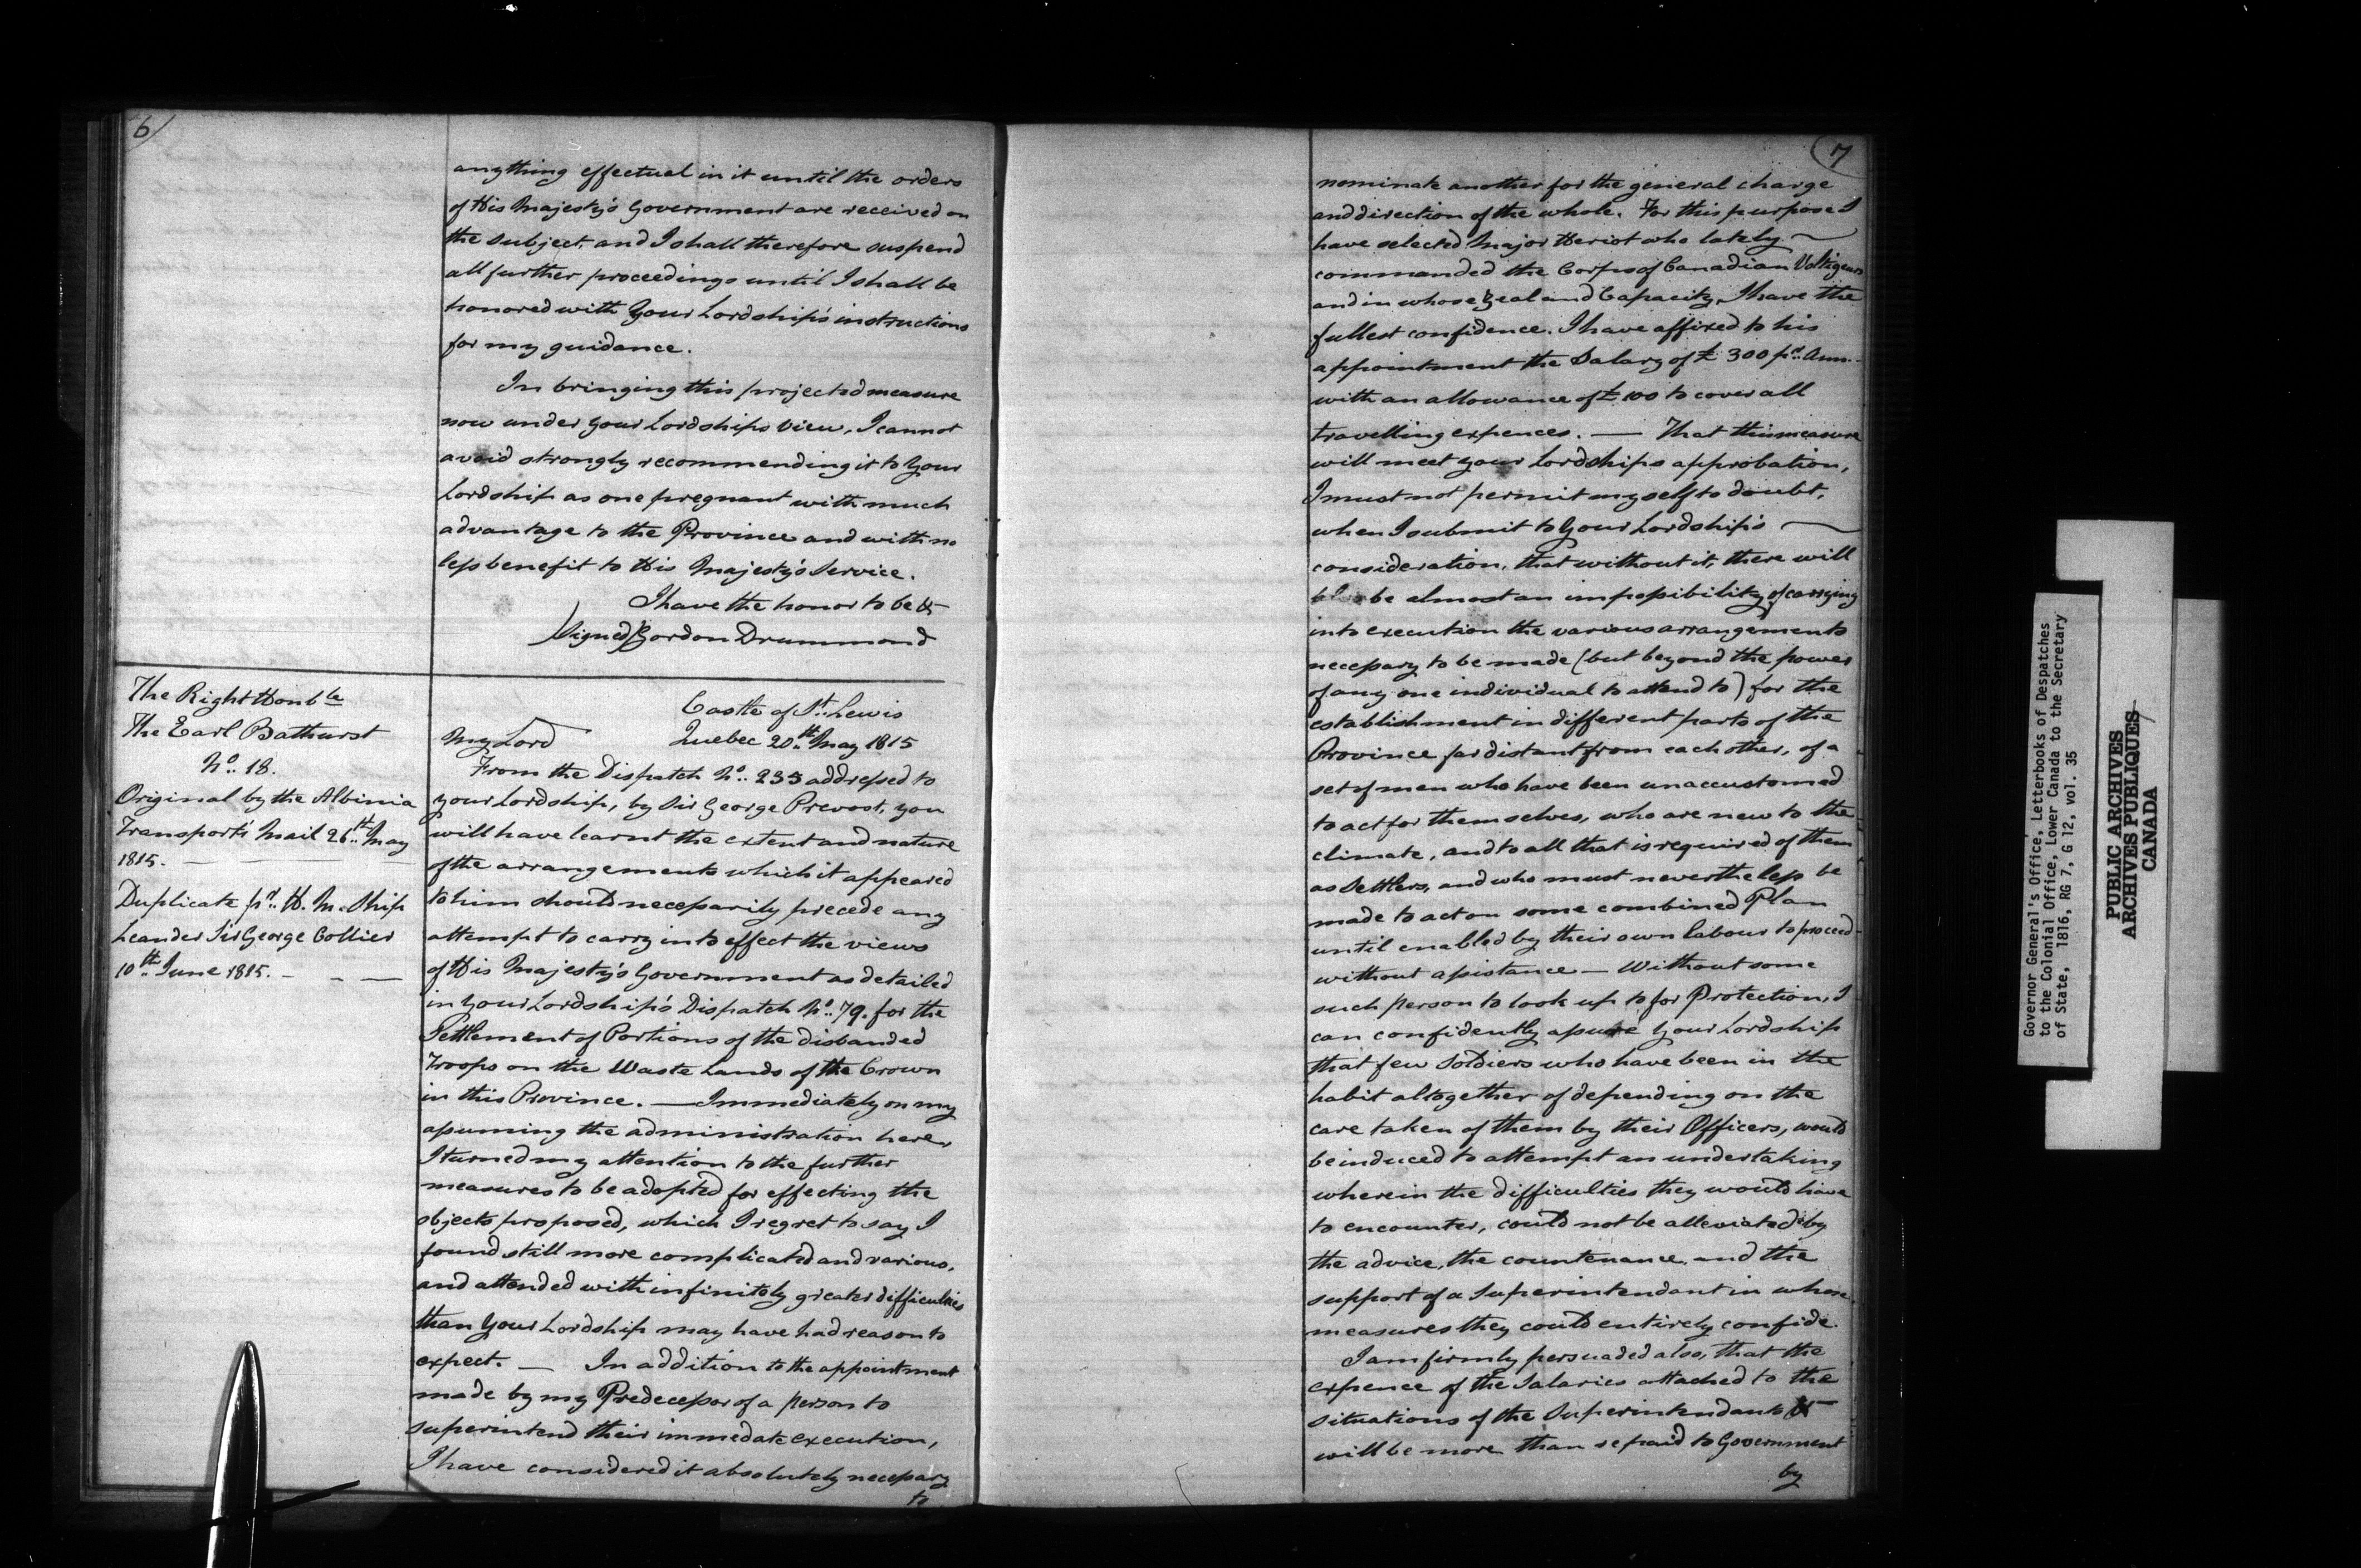 6/
anything effectual in it until the orders
of His Majesty's Government are received on
the subject, and I shall therefore suspend
all further proceedings until I shall be
honored with Your Lordship's instructions
for my guidance.
In bringing this projected measure
now under your Lordships view, I cannot
avoid strongly recommending it to Your
Lordship as one pregnant with much
advantage to the Province and with no
less benefit to His Majesty's Service.
I have the honor to be &c
Signed) Gordon Drummond
The Right Honble
The Earl Bathurst
No. 18.
Original by the Albinia
Transport's Mail 26th May
1815. —
Duplicate pr. H. M. Ship
Leander Sir George Collier
10th June 1815. — — —
Castle of St. Lewis
My Lord Quebec 20th May 1815
From the Dispatch No. 235 addressed to
your Lordship, by Sir George Prevost, you
will have learnt the extent and nature
of the arrangements which it appeared
to him should necessarily precede any
attempt to carry into effect the views
of His Majesty's Government as detailed
in Your Lordship's Dispatch No. 79. for the
Settlement of Portions of the disbanded
Troops on the Waste Lands of the Crown
in this Province. — Immediately on my
assuming the administration here,
I turned my attention to the further
measures to be adopted for effecting the
objects proposed, which I regret to say I
found still more complicated and various,
and attended with infinitely greater difficulties
than Your Lordship may have had reason to
expect. — In addition to the appointment
made by my Predecessor of a person to
superintend their immedate execution,
I have considered it absolutely necessary
to
7
nominate another for the general charge
and direction of the whole. For this purpose I
have selected Major Heriot who lately —
commanded the Corps of Canadian Voltigeurs
and in whose Zeal and Capacity, I have the
fullest confidence. I have affixed to his
appointment the Salary of £300 pr. Ann.
with an allowance of £100 to cover all
travelling expences. — That this measure
will meet your Lordships approbation,
I must not permit myself to doubt,
when I submit to Your Lordship's —
consideration, that without it, there will
be almost an impossibility of carrying
into execution the various arrangements
necessary to be made (but beyond the power
of any one individual to attend to) for the
establishment in different parts of the
Province far distant from each other, of a
set of men who have been unaccustomed
to act for themselves, who are new to the
climate, and to all that is required of them
as Settlers, and who must nevertheless be
made to act on some combined Plan
until enabled by their own labour to proceed
without assistance — Without some
such person to look up to for Protection, I
can confidently assure Your Lordship
that few Soldiers who have been in the
habit altogether of depending on the
care taken of them by their Officers, would
be induced to attempt an undertaking
wherein the difficulties they would have
to encounter, could not be alleviated by
the advice, the countenance, and the
support of a Superintendant in whose
measures they could entirely confide.
I am firmly persuaded also, that the
expence of the Salaries attached to the
situations of the Superintendants &c
will be more than repaid to Government
by
Governor General's Office, Letterbooks of Despatches
to the Colonial Office, Lower Canada to the Secretary
of State, 1816, RG 7, G 12, vol. 35
PUBLIC ARCHIVES
ARCHIVES PUBLIQUES
CANADA